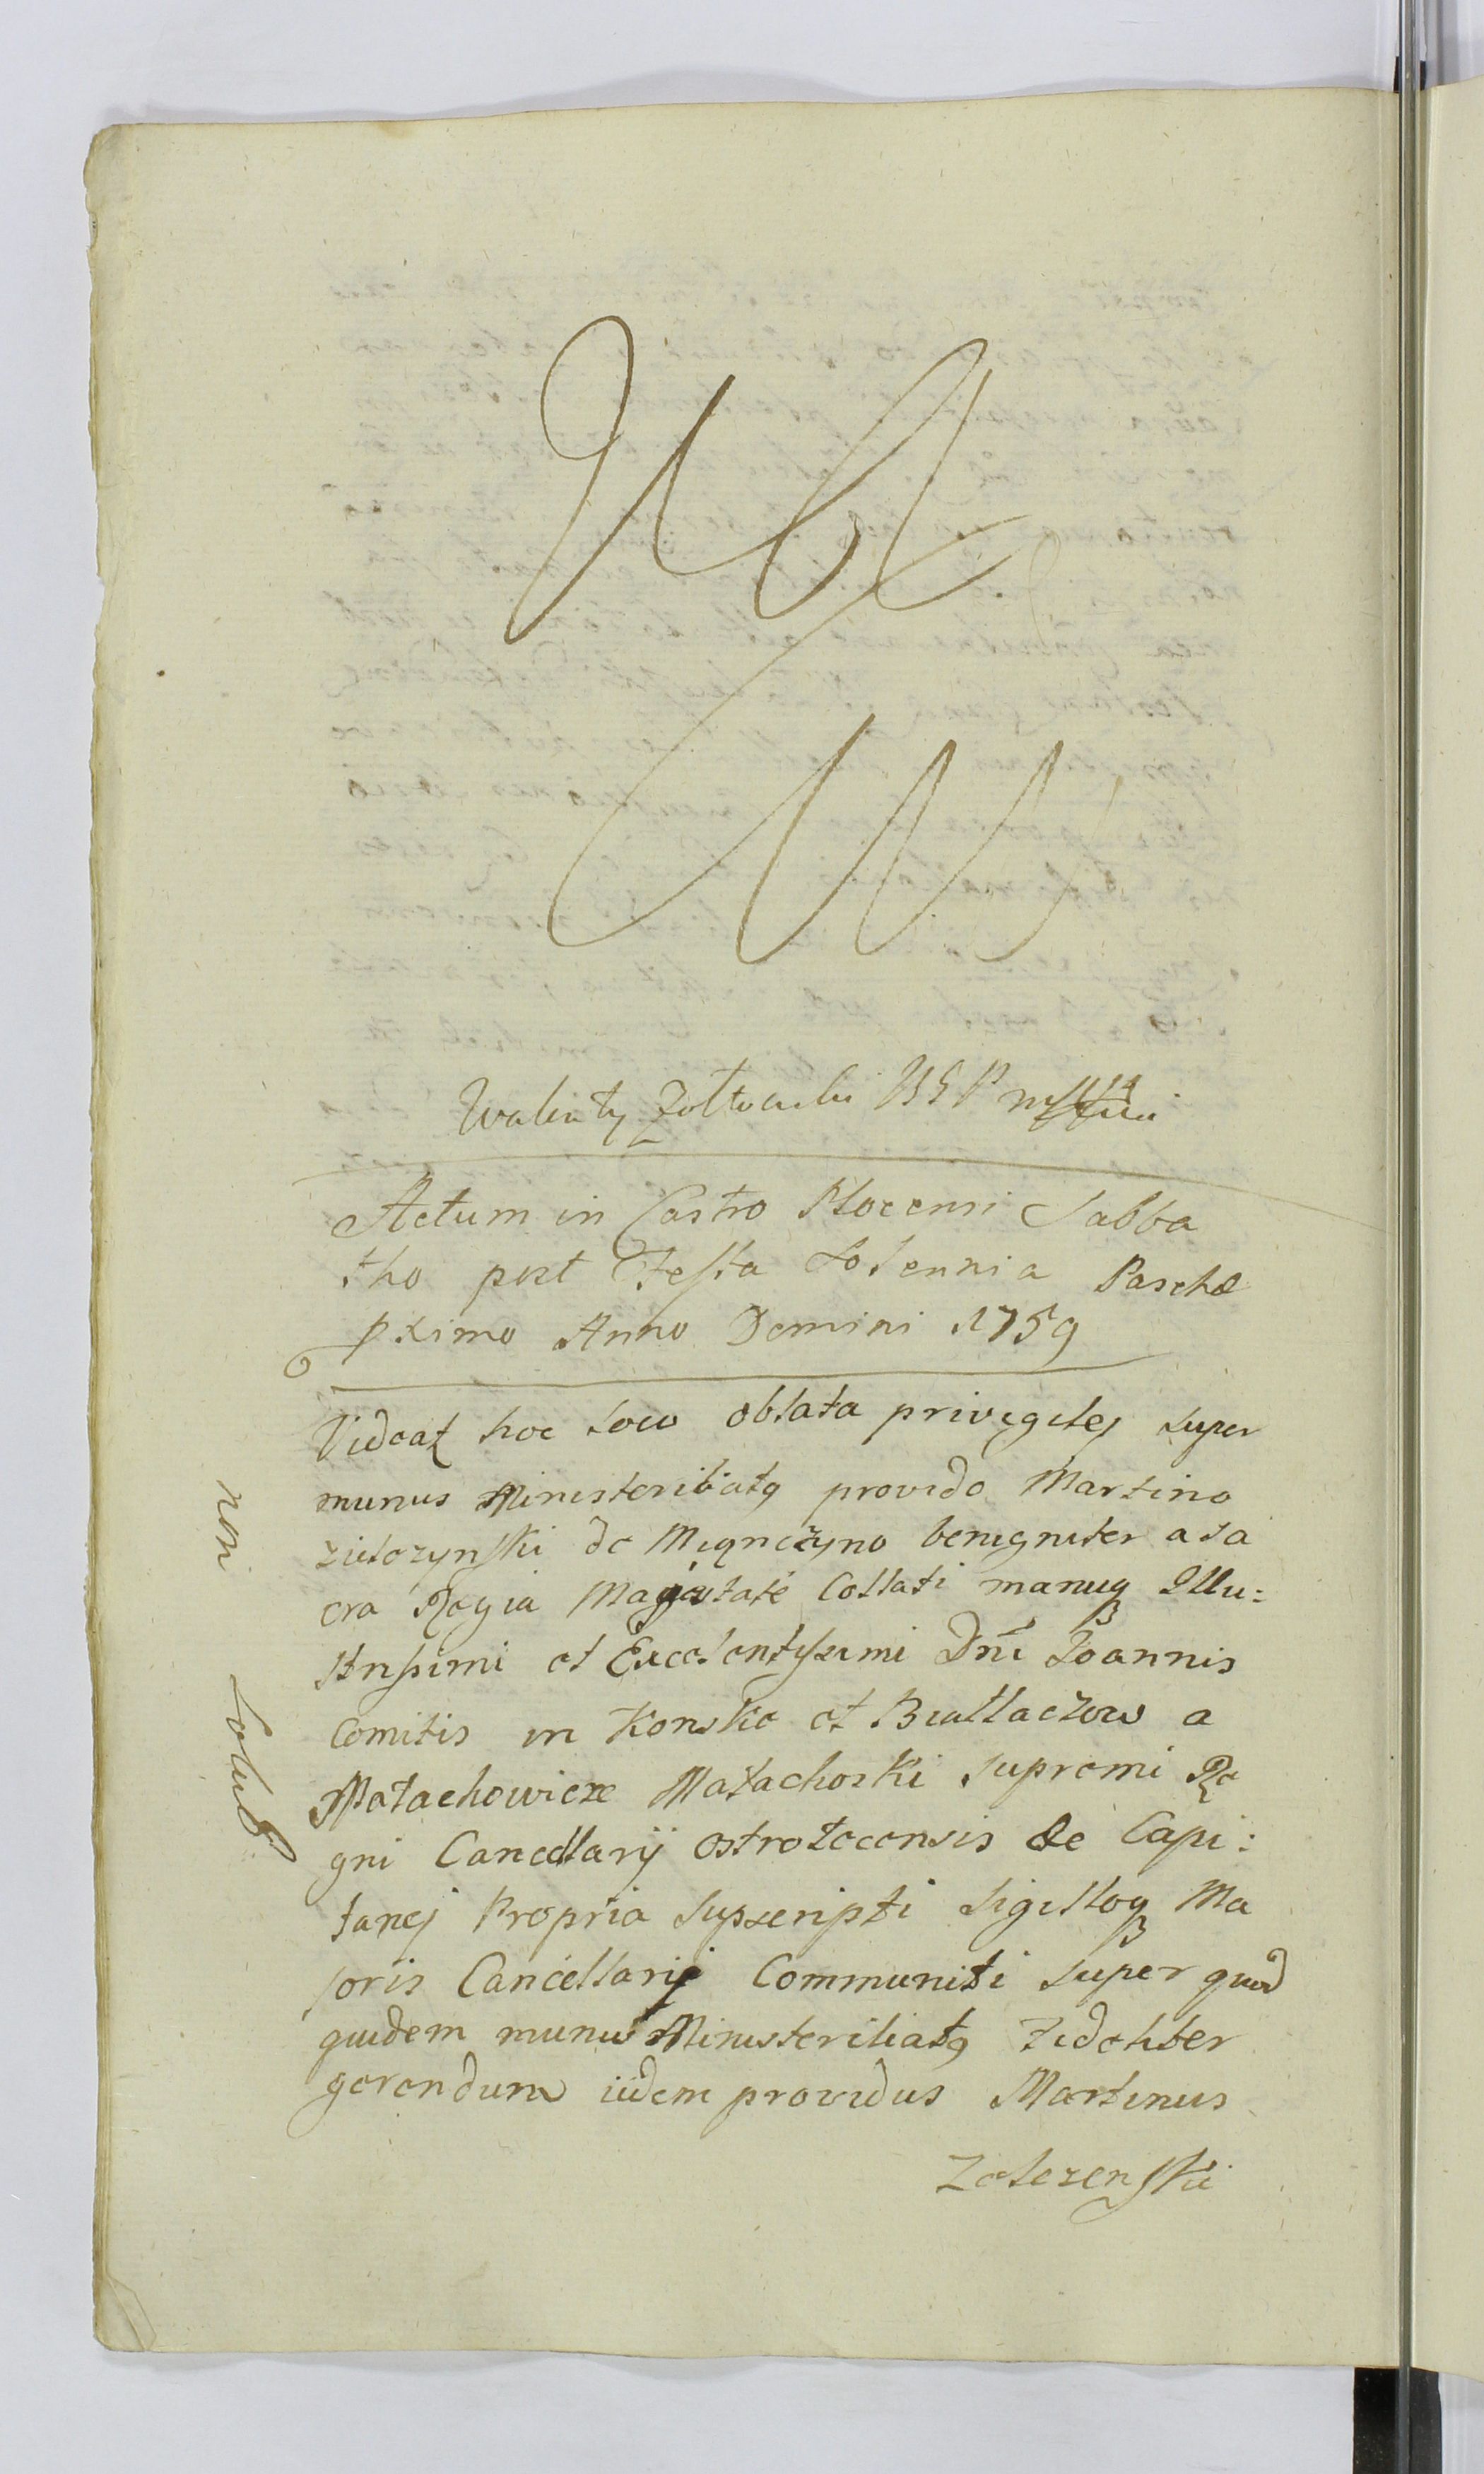 Actum in Castro Plocensi Sabba
tho post Festa Solennia Paschæ
pximo Anno Domini 1759
Videat hoc Loco oblata privigiley super
munus Ministerialatq provido Martino
zielczynski de Mięnczyno benigniter a Sa
cra Regia Majestate Collati manuq Illu:
strissimi et Excelentyssimi Dni Joannis
Comitis in Konskie et Biallaczow a
Małachowicze Małachoski Supremi Re
gni Cancellarij Ostrołecensis &c Capi:
tanej Propria Supscripti Sigilloq Ma
joris Cancellarij Communiti Super quod
quidem munus Ministerilatq Fideliter
gerendum iidem providus Martinus
Zelezenskii
non